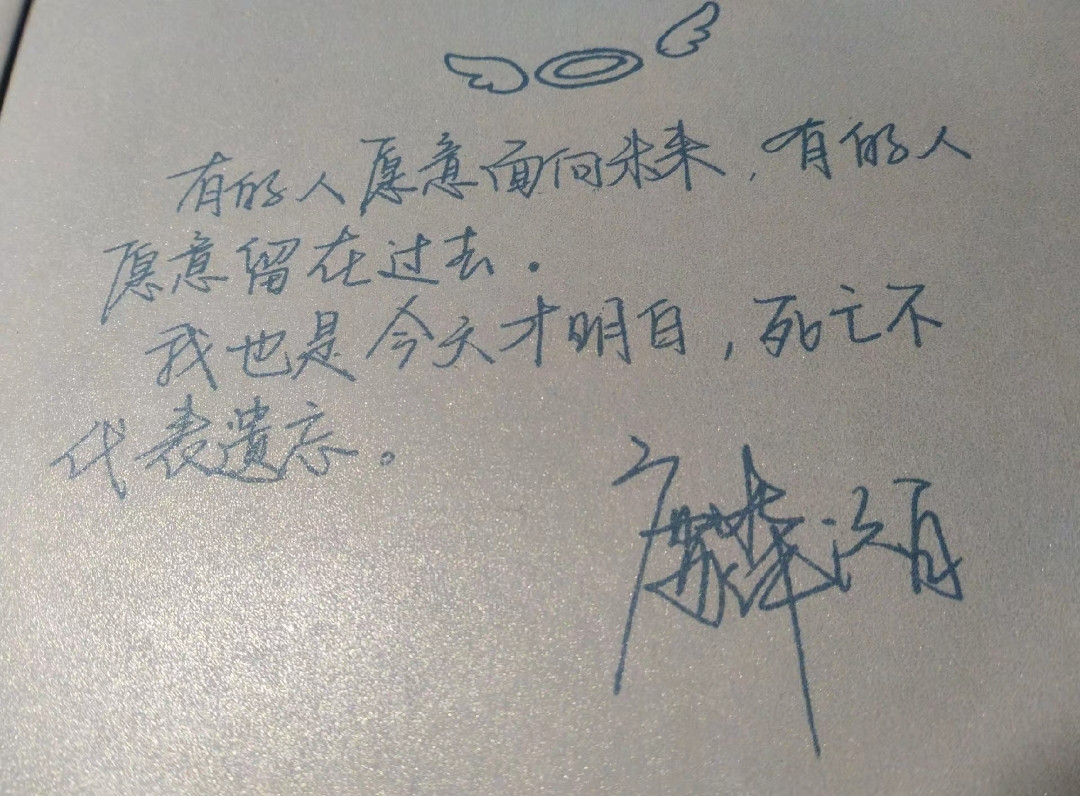 有的人愿意面向未来，有的人
愿意留在过去.
我也是今天才明白，死亡不
代表遗忘。